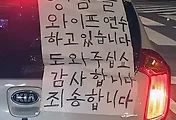 와이프 연수
하고 있습니다
도와주십쇼
감사합니다
죄송합니다
KIA